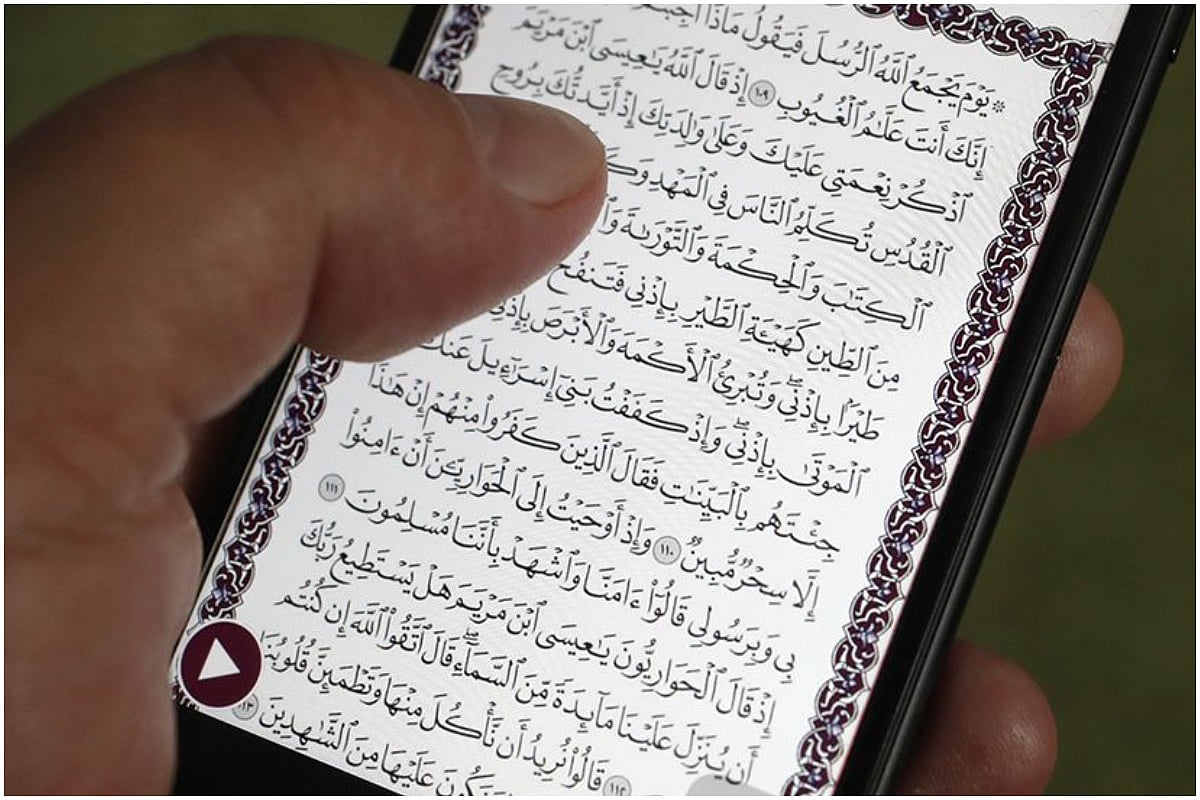 ۞ يَوْمَ يَجْمَعُ ٱللَّهُ ٱلرُّسُلَ فَيَقُولُ مَاذَآ
إِنَّكَ أَنتَ عَلَّٰمُ ٱلْغُيُوبِ ١٠٩ إِذْ قَالَ ٱللَّهُ يَٰعِيسَى ٱبْنَ مَرْيَمَ
ٱذْكُرْ نِعْمَتِى عَلَيْكَ وَعَلَىٰ وَٰلِدَتِكَ إِذْ أَيَّدتُّكَ بِرُوحِ
ٱلْقُدُسِ تُكَلِّمُ ٱلنَّاسَ فِى ٱلْمَهْدِ
ٱلْكِتَٰبَ وَٱلْحِكْمَةَ وَٱلتَّوْرَىٰةَ
مِنَ ٱلطِّينِ كَهَيْـَٔةِ ٱلطَّيْرِ بِإِذْنِى فَتَنفُخُ
طَيْرًۢا بِإِذْنِىۖ وَتُبْرِئُ ٱلْأَكْمَهَ وَٱلْأَبْرَصَ بِإِذْنِى
ٱلْمَوْتَىٰ بِإِذْنِىۖ وَإِذْ كَفَفْتُ بَنِىٓ إِسْرَٰٓءِيلَ عَنكَ
جِئْتَهُم بِٱلْبَيِّنَٰتِ فَقَالَ ٱلَّذِينَ كَفَرُوا۟ مِنْهُمْ إِنْ هَٰذَآ
إِلَّا سِحْرٌ مُّبِينٌ ١١٠ وَإِذْ أَوْحَيْتُ إِلَى ٱلْحَوَارِيِّـۧنَ أَنْ ءَامِنُوا۟
بِى وَبِرَسُولِى قَالُوٓا۟ ءَامَنَّا وَٱشْهَدْ بِأَنَّنَا مُسْلِمُونَ ١١١
إِذْ قَالَ ٱلْحَوَارِيُّونَ يَٰعِيسَى ٱبْنَ مَرْيَمَ هَلْ يَسْتَطِيعُ رَبُّكَ
أَن يُنَزِّلَ عَلَيْنَا مَآئِدَةً مِّنَ ٱلسَّمَآءِۖ قَالَ ٱتَّقُوا۟ ٱللَّهَ إِن كُنتُم
١١٢ قَالُوا۟ نُرِيدُ أَن نَّأْكُلَ مِنْهَا وَتَطْمَئِنَّ قُلُوبُنَا
وَنَكُونَ عَلَيْهَا مِنَ ٱلشَّٰهِدِينَ ١١٣